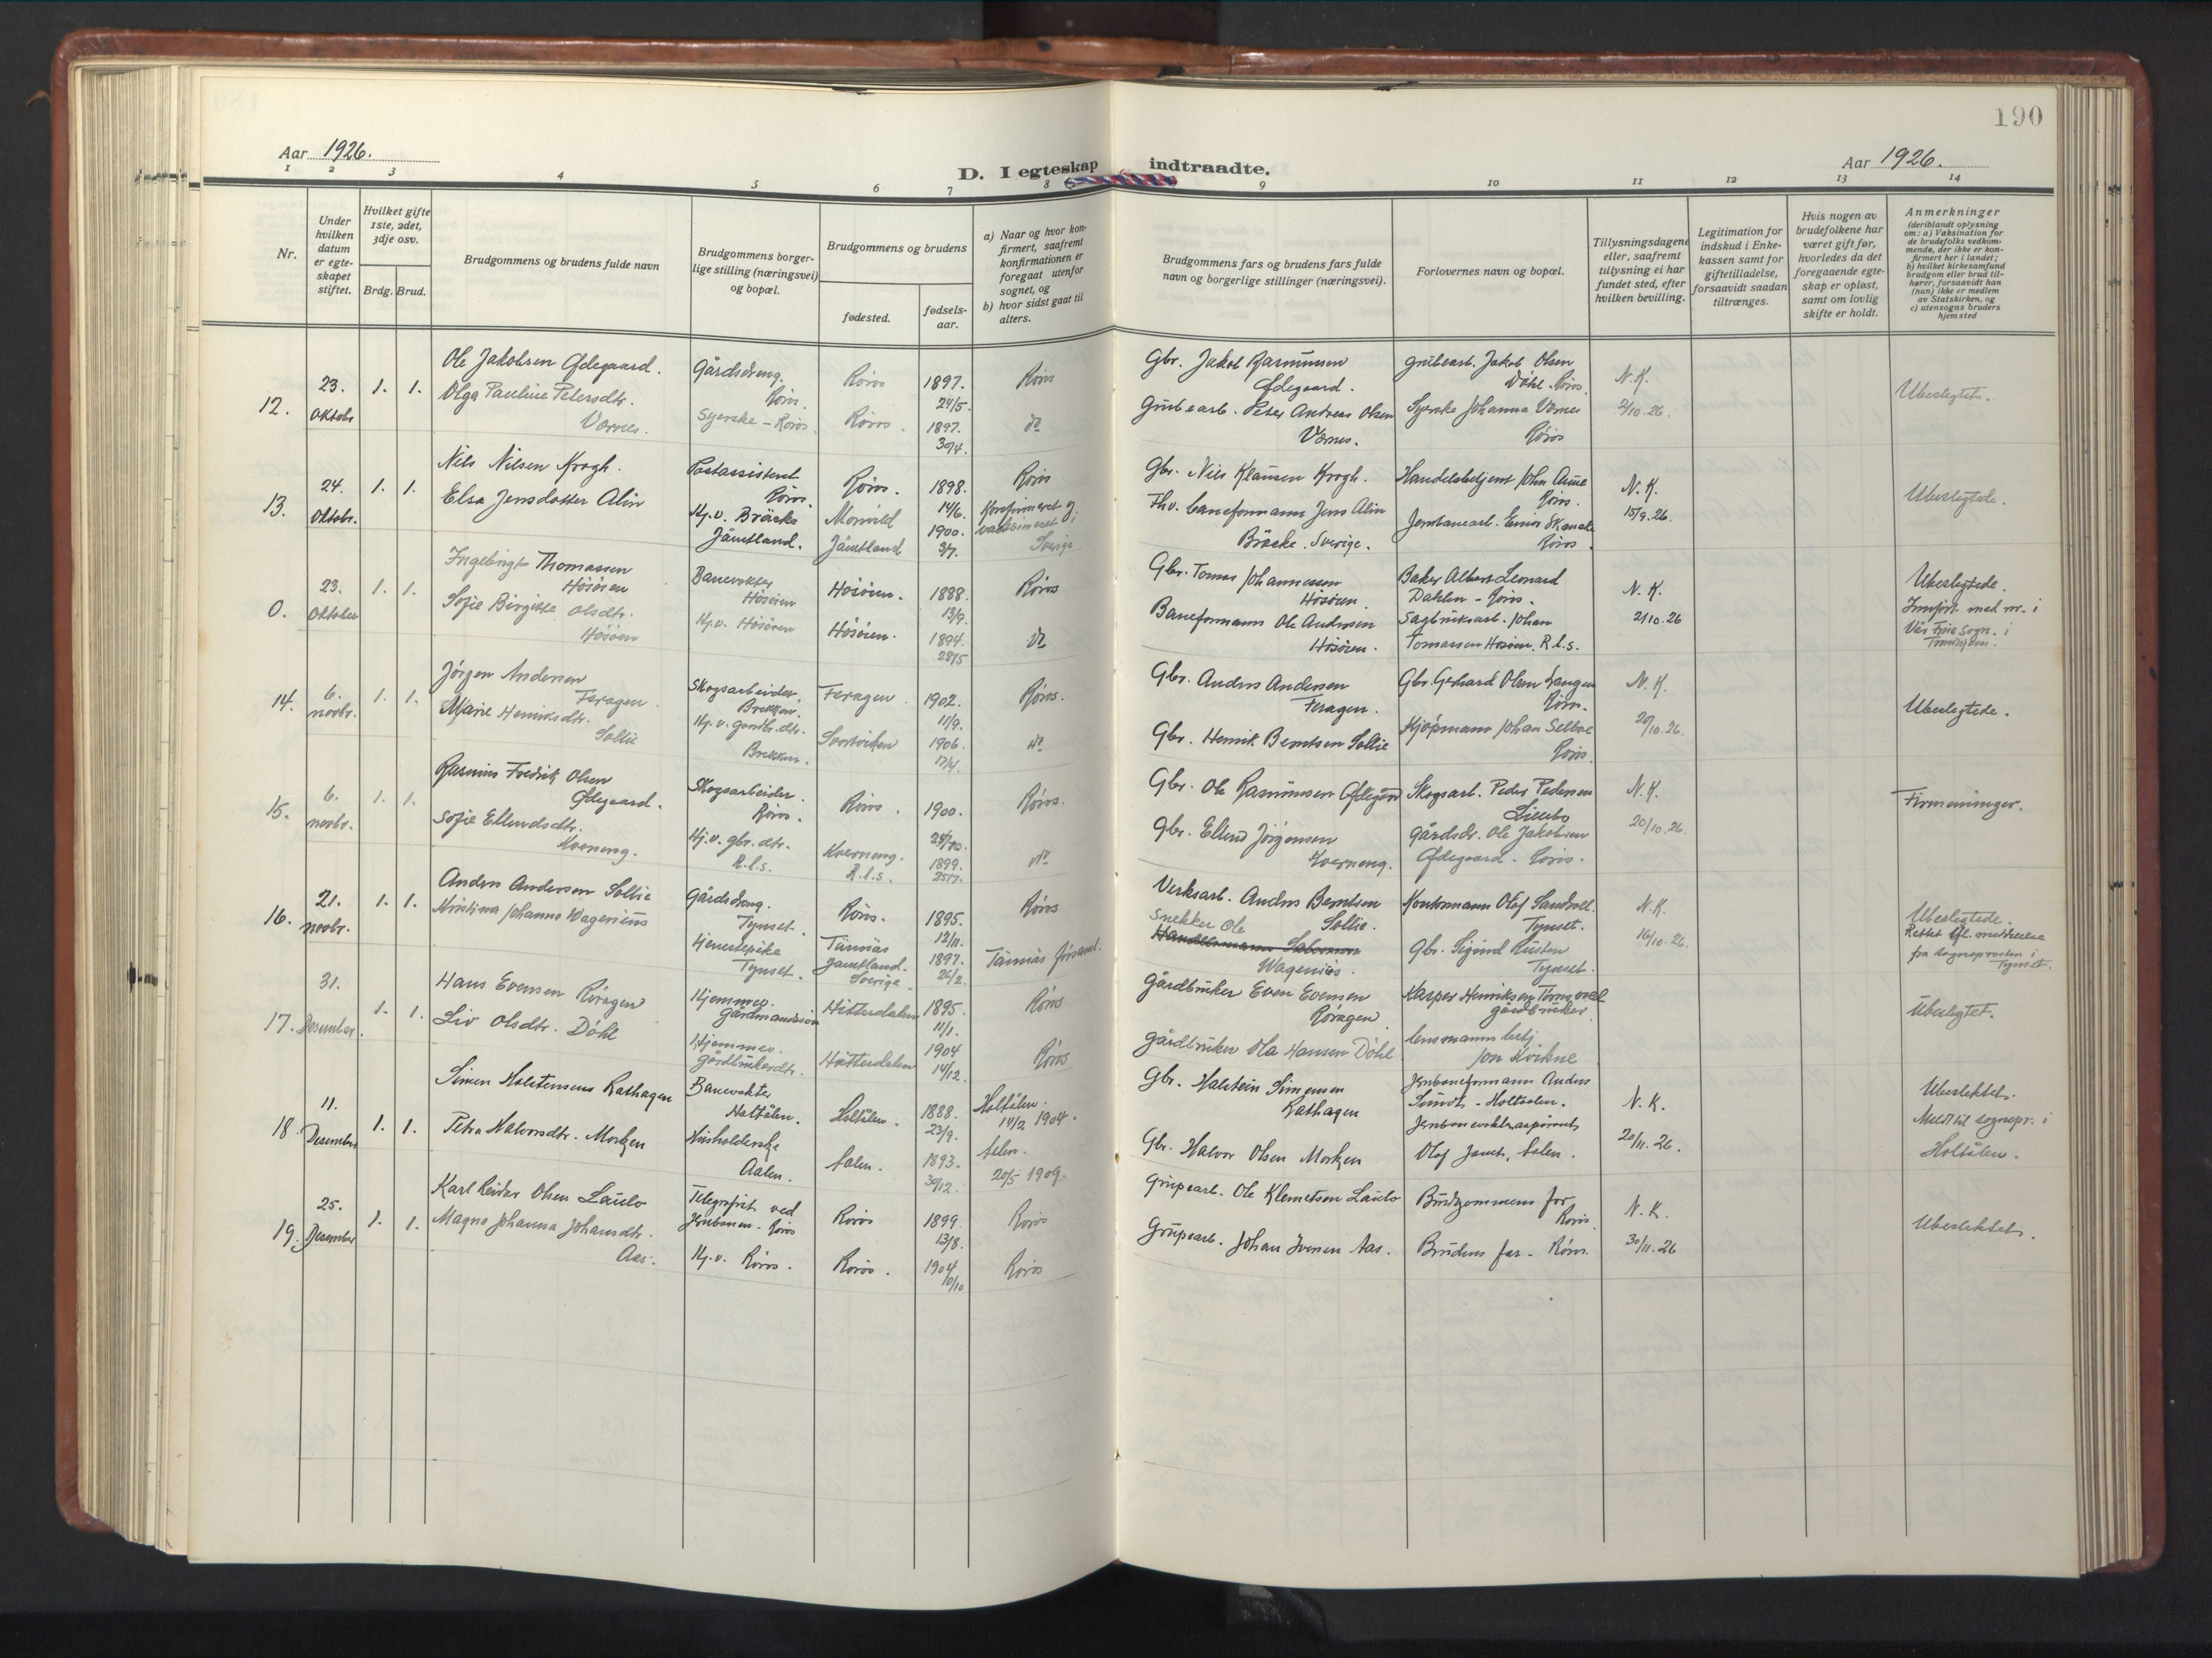 190
Aar 1926.
D. I egteskap indtraadte.
Aar 1926.
1 2 3 4 5 6 7 8 9 10 11 12 13 14
Nr.
Under hvilken datum er egteskapet stiftet.
Hvilket gifte 1ste, 2det, 3dje osv.
Brdg. Brud.
Brudgommens og brudens fulde navn
Brudgommens borgerlige stilling (næringsvei) og bopæl.
Brudgommens og brudens
fødested.
fødselsaar.
a) Naar og hvor konfirmert, saafremt konfirmationen er foregaat utenfor sognet, og
b) hvor sidst gaat til alters.
Brudgommens fars og brudens fars fulde navn og borgerlige stillinger (næringsvei).
Forlovernes navn og bopæl.
Tillysningsdagene eller, saafremt tillysning ei har fundet sted, efter hvilken bevilling.
Legitimation for indskud i Enkekassen samt for giftetilladelse, forsaavidt saadan tiltrænges.
Hvis nogen av brudefolkene har været gift før, hvorledes da det foregaaende egteskap er opløst, samt om lovlig skifte er holdt.
Anmerkninger
(deriblandt oplysning om: a) Vaksination for de brudefolks vedkommende, der ikke er konfirmert her i landet; b) hvilket kirkesamfund brudgom eller brud tilhører, forsaavidt han (hun) ikke er medlem av Statskirken, og c) utensogns bruders hjemsted
12. 23. Oktobr 1. 1.
Ole Jakobsen Ødegaard.
Olga Pauline Petersdtr. Værnes.
Gårdsdreng. Røros. Røros 1897. 24/5. Røros
Syerske - Røros. Røros. 1897. 30/4. do
Gbr. Jakob Rasmussen Ødegaard.
Grubearb. Peter Andreas Olsen Værnes.
Grubearb. Jakob Olsen Döhl. Røros.
Syerske Johanna Værnes Røros
N.K. 2/10.26.
Ubeslegtet.
13. 24. Oktobr. 1. 1.
Nils Nilsen Krogh.
Elsa Jensdotter Alin
Postassistent Røros. Røros. 1898. 14/6. Røros
Hj.v. Bräcke Jämtland. Jämtland 1900. 3/7. Konfirmeret og vaksineret i Sverige
Gbr. Nils Klausen Krogh.
Fhv. baneformann Jens Alin Bräcke. Sverige.
Handelsbetjent John Aune Røros.
Jernbanearb. Einar Skancke Røros.
N.K. 15/9.26.
Ubeslegtede.
0. 23. Oktober 1. 1.
Ingebrigt Thomassen Hösöien
Sofie Birgitte Olsdtr. Hösöien
Banevokter Hösöien Hösöien. 1888. 13/9. Røros
Hj.v. Hösöien Hösöien. 1894. 28/5 do
Gbr. Tomas Johannessen Hösöien.
Baneformann Ole Andersen Hösöien.
Baker Albert Leonard Dahlen - Røros.
Sagbruksarb. Johan Tomassen Hösöien. R.l.s.
N.K. 2/10.26
Ubeslegtede.
Innført med nr. i Vår Frue sogn. i Trondhjem.
14. 6. novbr. 1. 1.
Jörgen Andersen Feragen.
Marie Henriksdtr. Sollie
Skogsarbeider. Brekken. Feragen 1902. 11/9. Røros.
Hj.v. gardbr.dtr. Brekken. 1906. 17/4. do
Gbr. Anders Andersen Feragen.
Gbr. Henrik Berntsen Sollie
Gbr. Gerhard Olsen Langen Røros.
Kjöpmann Johan Selboe Røros.
N.K. 20/10.26.
Ubeslegtede.
15. 6. novbr. 1. 1.
Rasmus Fredrik Olsen Ødegaard.
Sofie Ellendsdtr. Kverneng.
Skogsarbeider. Røros. Røros. 1900. Røros.
Hj.v. gbr.dtr. R.l.s. Kverneng. R.l.s. 1899. do
Gbr. Ole Rasmussen Ødegård
Gbr. Ellend Jörgensen Kverneng.
Skogsarb. Peder Pedersen Lillebo
Gårdsdr. Ole Jakobsen Ødegaard - Røros.
N.K. 20/10.26.
Firmenninger.
16. 21. novbr. 1. 1.
Anders Andersen Sollie
Kristina Johanna Wagenius
Gårdsdreng. Tynset. Røros. 1895. 12/11. Røros
Tjenestepike Tynset. Tännäs Jämtland. Sverige 1897. 26/2. Tännäs
Verksarb. Anders Berntsen Sollie.
Snekker Ole Wagenius.
Kontormann Olaf Sandvoll. Tynset.
Gbr. Sigurd Rusten Tynset.
N.K. 16/10.26.
Ubeslegtede.
Rettet efl. meddelelse fra sogneprosten i Tynset.
17. 31. Desember. 1. 1.
Hans Evensen Röragen
Liv Olsdtr. Döhl
Hjemmev. gårdmandssön Hitterdalen 1895. 11/1. Røros
Hjemmev. gårdbrukerdtr. Hitterdalen 1904 14/12. Røros
Gårdbruker Even Evensen Röragen
Gårdbruker Ola Hansen Döhl
Kasper Henriksen gårdbruker.
lensmannsbetj Jon Kvikne
Ubeslegtet.
18. 11. Desember 1. 1.
Simen Halstensens Rathagen
Petra Halvorsdtr. Morken
Banevokter Holtålen. Holtålen. 1888. 23/9. Holtålen. 14/2 1904.
Husholderske Aalen. Aalen. 1893. 30/12. Aalen. 20/5 1909.
Gbr. Halstein Simensen Rathagen
Gbr. Halvor Olsen Morken
Jernbaneformann Anders Sundt - Holtaalen.
Jernbanevokteraspirant Olaf Aalen.
N.K. 20/11.26.
Ubeslektet.
Meldt til sognepr. i Holtålen.
19. 25. Desember 1. 1.
Karl Reidar Olsen Laubo
Magna Johanna Johansdtr. Aas.
Telegrafist ved Jernbanen - Røros Røros 1899. 13/8. Røros
Hj.v. Røros. Røros. 1904 10/10 Røros
Grubearb. Ole Klemetsen Laubo
Grubearb. Johan Iversen Aas.
Brudgommens far Røros.
Brudens far - Røros.
N.K. 30/11.26
Ubeslektet.